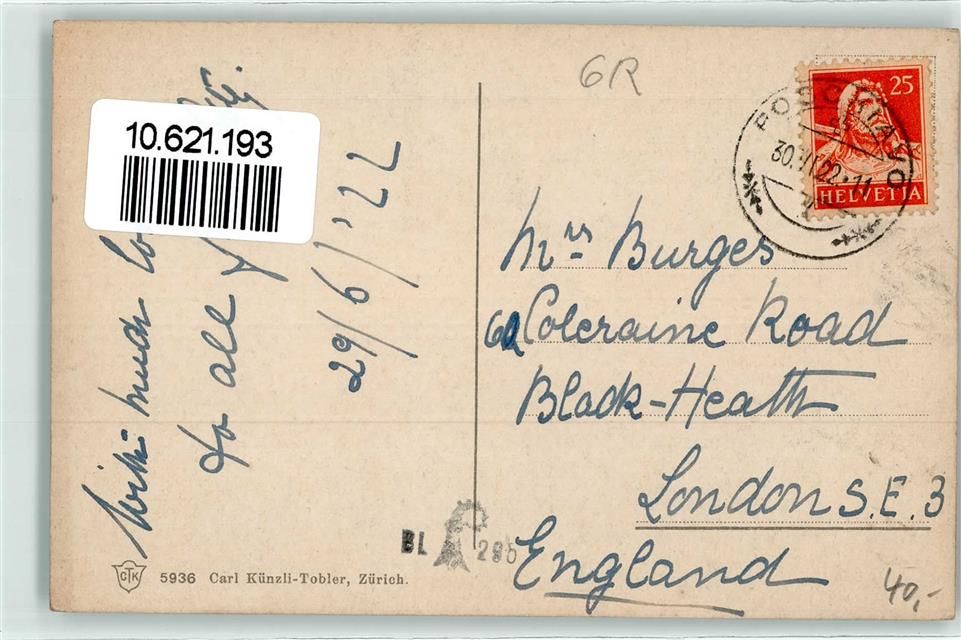 10.621.193
With much lo
to all
29/6/'22
6R
25
HELVETIA
POSCHIAVO
30.VI.22.-11
Mrs Burges
Coleraine Road
Black-Heath
London S.E. 3
England
BL 295
CTK
5936 Carl Künzli-Tobler, Zürich.
40,-